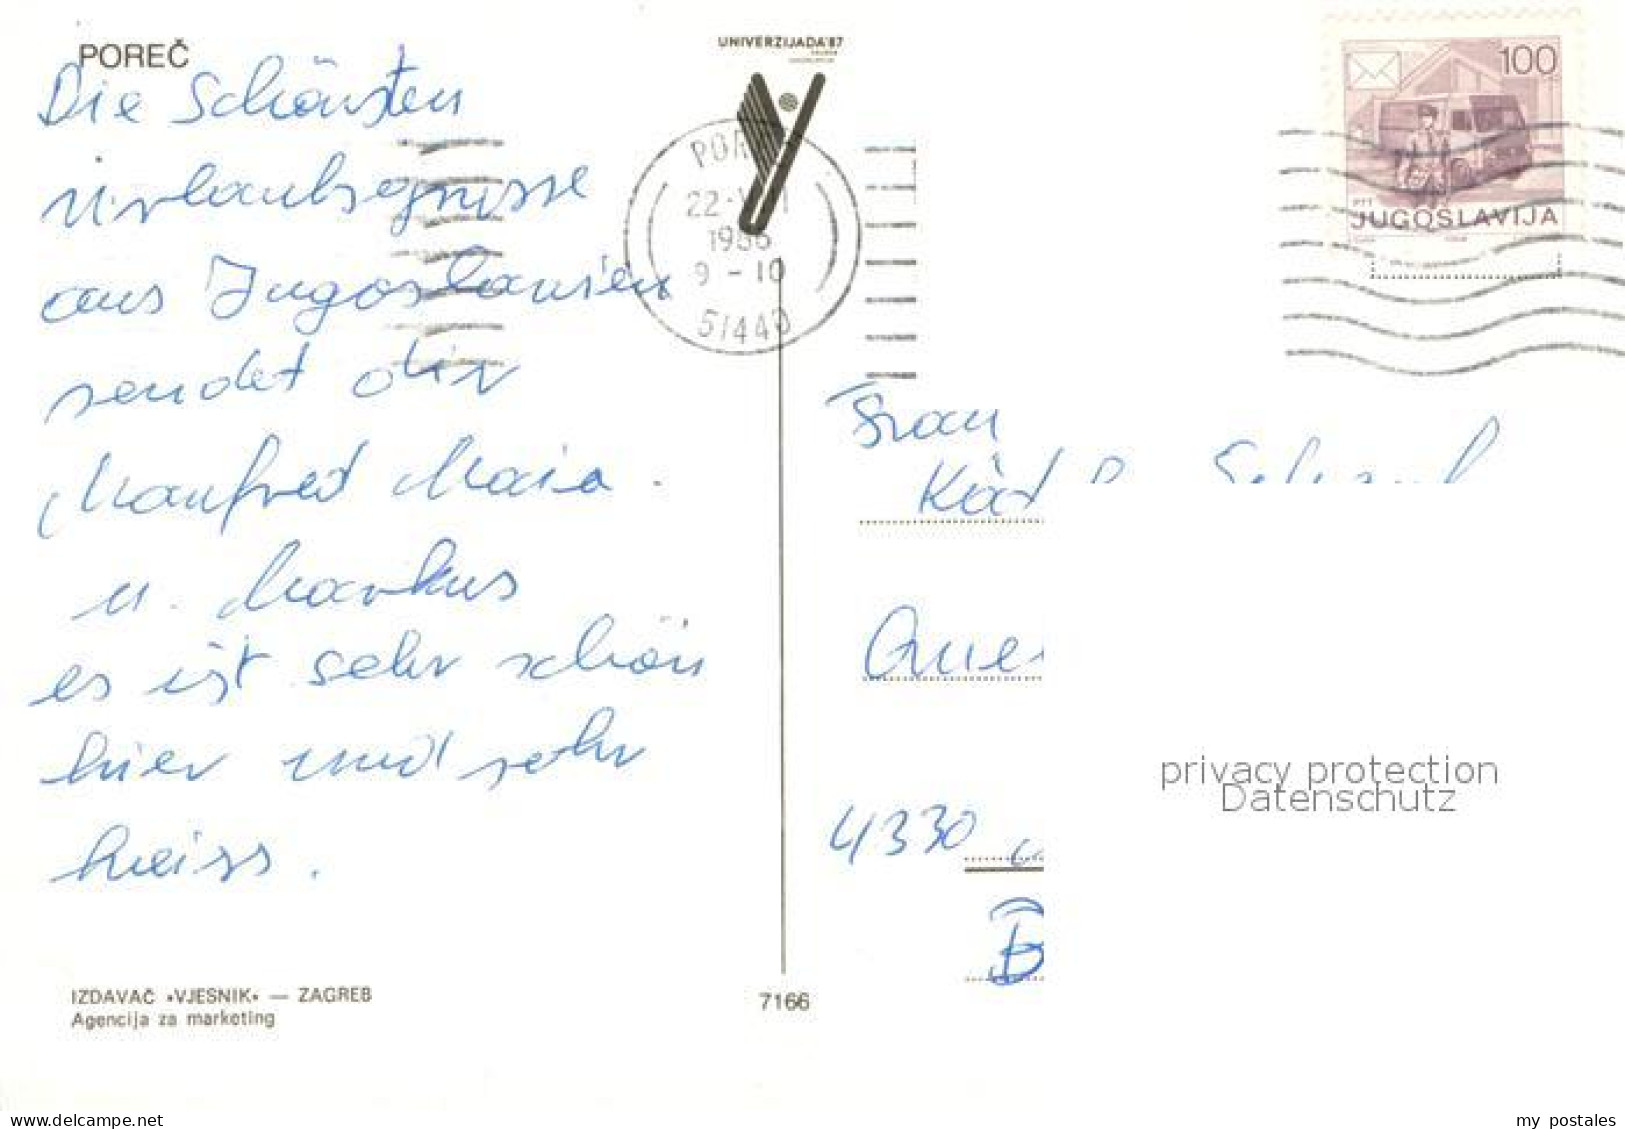 POREČ
UNIVERZIJADA'87
Die Schönsten
Urlaubsgrüsse
aus Jugoslawien
sendet dir
Manfred Maria
u. Markus
es ist sehr schön
hier und sehr
heiss.
1986
9 - 10
51440
100
PTT
JUGOSLAVIJA
Frau
4330
privacy protection
Datenschutz
IZDAVAČ »VJESNIK« — ZAGREB
Agencija za marketing
7166
delcampe.net
my_postales